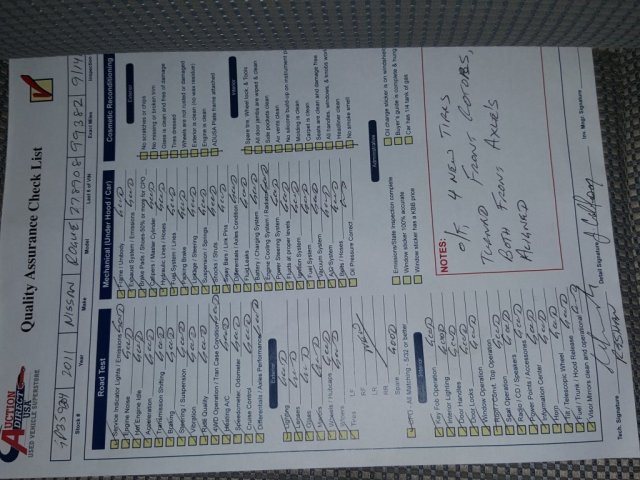 AUCTION
DIRECT
USA
USED VEHICLE SUPERSTORE
Quality Assurance Check List
2011 NISSAN ROGUE 278908 99382 9/14
Stock # Year Make Model Last 6 of VIN Exact Miles Inspection
Road Test
Service Indicator Lights / Emissions GOOD
Engine Noise GOOD
Hot Engine Idle GOOD
Acceleration GOOD
Transmission Shifting GOOD
Braking GOOD
Steering GOOD
Vibration GOOD
Ride Quality GOOD
4WD Operation / Tran Case Condition GOOD
Heating A/C GOOD
Speedometer / Odometer GOOD
Cruise Control GOOD
Differentials / Axles Performance GOOD
Exterior
Lighting GOOD
Glasses GOOD
Wheels / Hubcaps GOOD
Tires LF
RF
LR
RR
Spare GOOD
Interior
Key Fob Operation GOOD
Interior Lighting GOOD
Door Handles GOOD
Door Locks GOOD
Window Operation GOOD
Seat Operation GOOD
Radio / CD / Speakers GOOD
Power Points / Accessories GOOD
Information Center GOOD
Horn GOOD
Tilt / Telescopic Whl GOOD
Fuel / Trunk / Hood Release GOOD
Visor Mirrors clean and operational
Tech. Signature
Mechanical (Under Hood / Car)
Engine / Unibody GOOD
Exhaust System / Emissions GOOD
Brake Pads / Shoes 50% or more for CPO
Calipers / Master Cylinder GOOD
Hydraulic Lines / Hoses GOOD
Fuel System / Lines GOOD
Parking Brake GOOD
Linkage / Steering GOOD
Suspension / Springs GOOD
Struts / Shocks GOOD
Sway Bar / Link Pins GOOD
Differentials / Axles Condition GOOD
Fluid Leaks GOOD
Battery / Charging System GOOD
Engine Cooling System GOOD
Power Steering System GOOD
Fluids at proper levels GOOD
Ignition System GOOD
Fuel System GOOD
Vacuum System GOOD
A/C System GOOD
Belts / Hoses GOOD
Oil Pressure Correct
Emissions/State Inspection complete
Window sticker 100% accurate
Window sticker has a KBB price
Cosmetic Reconditioning
Exterior
No scratches or chips
No missing or broken trim
Glass is clean and free of damage
Tires dressed
Wheels are not rusted or damaged
Exterior is clean (no wax residue)
Engine is clean
ADUSA Plate frame attached
Interior
Spare tire, Wheel lock, & Tools
All door jambs are wiped & clean
Side pockets clean
Ac vents clean
No silicone build-up on instrument p
Molding is clean
Carpet is clean
Seats are clean and damage free
All handles, windows, & knobs work
Headliner clean
No smoke smell
Administrative
Oil change sticker is on windshield
Buyer's guide is complete & hung
Car has 1/4 tank of gas
NOTES:
O/F, 4 NEW TIRES
TURNED FRONT ROTORS,
BOTH FRONT AXLES
ALIGNED
Detail Signature
Inv. Mngr Signature